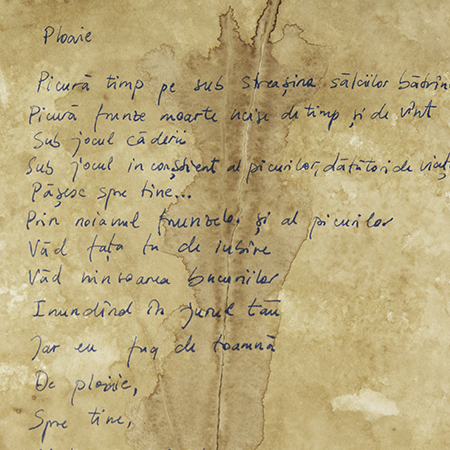 Ploaie
Picură timp pe sub streașina sălciilor bătrîne
Picură frunze moarte ucise de timp și de vînt
Sub jocul căderii
Sub jocul inconștient al picurilor, dătători de viaț
Pășesc spre tine...
Prin noianul frunzelor și al picurilor
Văd fața ta de iubire
Văd ninsoarea bucuriilor
Inundînd în jurul tău
Iar eu fug de toamnă
De ploaie,
Spre tine,